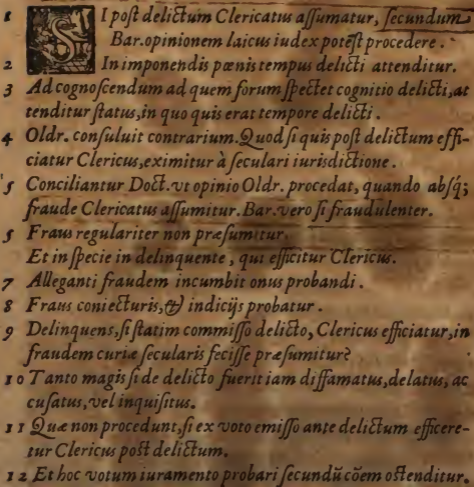 1 SI post delictum Clericatus assumatur, secundum
Bar. opinionem laicus iudex potest procedere.
2 In imponendis pœnis tempus delicti attenditur.
3 Ad cognoscendum ad quem forum spectet cognitio delicti, at
tenditur status, in quo quis erat tempore delicti.
4 Oldr. consuluit contrarium. Quod si quis post delictum effi-
ciatur Clericus, eximitur à seculari iurisdictione.
5 Conciliantur Doct. vt opinio Oldr. procedat, quando absq;
fraude Clericatus assumitur. Bar. vero si fraudulenter.
5 Fraus regulariter non præsumitur.
Et in specie in delinquente, qui efficitur Clericus.
7 Alleganti fraudem incumbit onus probandi.
8 Fraus coniecturis, & indicijs probatur.
9 Delinquens, si statim commisso delicto, Clericus efficiatur, in
fraudem curiæ secularis fecisse præsumitur?
10 Tanto magis si de delicto fuerit iam diffamatus, delatus, ac
cusatus, vel inquisitus.
11 Quæ non procedunt, si ex voto emisso ante delictum efficere-
tur Clericus post delictum.
12 Et hoc votum iuramento probari secundũ cõem ostenditur.